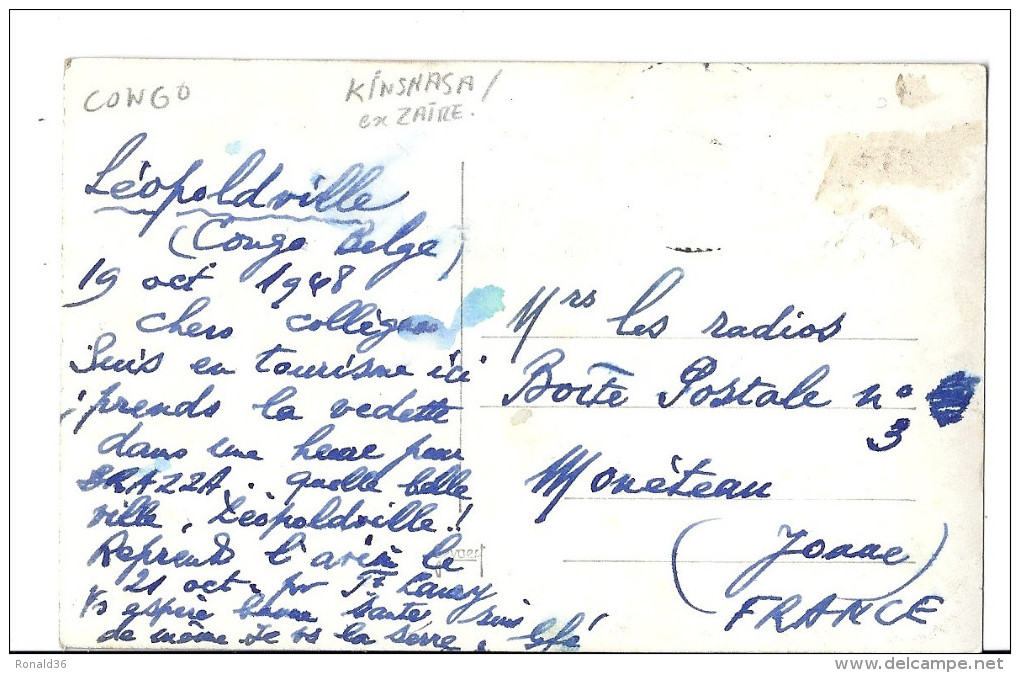 CONGO
KINSHASA/
ex ZAÏRE.
Léopoldville
(Congo Belge)
19 oct 1948
chers collègues
Suis en tourisme ici
prends la vedette
dans une heure pour
BRAZZA. quelle belle
ville, Léopoldville!!
Reprends l'avion le
21 oct. pr Ft Lamy
Vs espère bonne santé suis
de même. Je vs la serre.
Mrs les radios
Boîte Postale n°
3
Monéteau
(Yonne)
FRANCE
Ronald36
www.delcampe.net